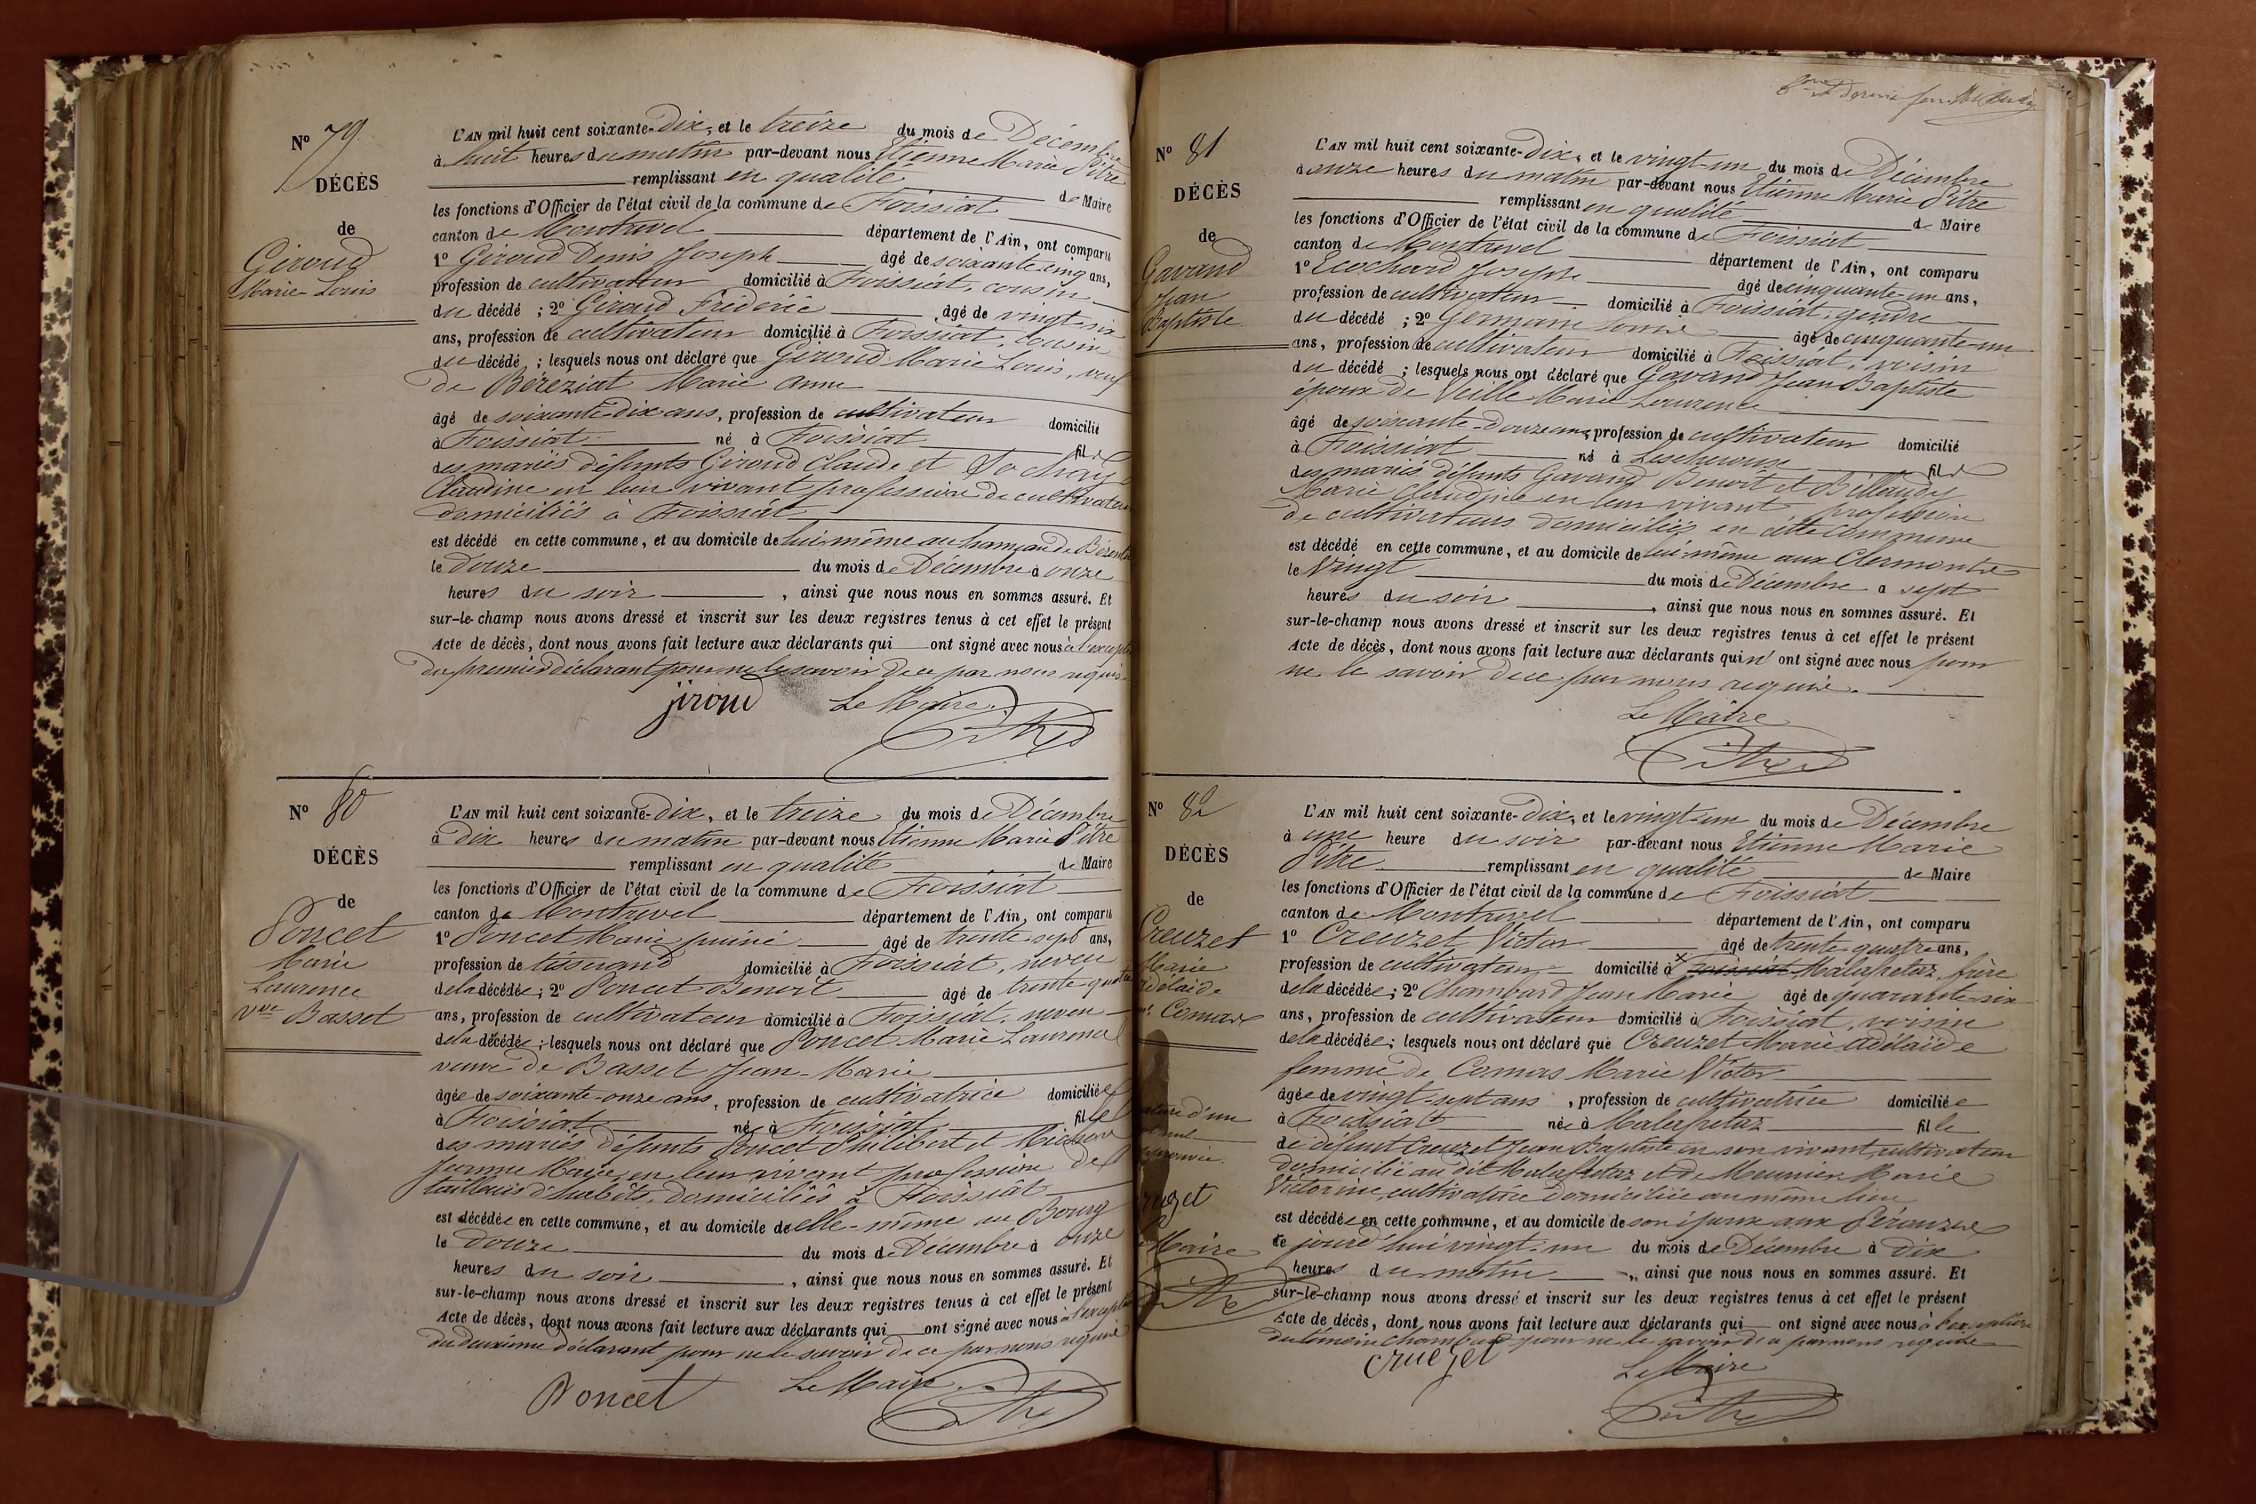 Nº 79
DÉCÈS
de
Giroud
Marie Louis
L'AN mil huit cent soixante-Dix, et le treize du mois de Décembre
à huit heures du matin par-devant nous Etienne Marie Pitre
remplissant en qualité de Maire
les fonctions d'Officier de l'état civil de la commune de Foissiat
canton de Montrevel département de l'Ain, ont comparu
1º Giroud Denis Joseph âgé de soixante-cinq ans,
profession de cultivateur domicilié à Foissiat, cousin
du décédé ; 2º Giroud Frédéric âgé de vingt-six
ans, profession de cultivateur domicilié à Foissiat, cousin
du décédé ; lesquels nous ont déclaré que Giroud Marie Louis, veuf
de Béreziat Marie Anne
âgé de soixante-dix ans, profession de cultivateur domicilié
à Foissiat né à Foissiat fils
des mariés défunts Giroud Claude et
Claudine en leur vivant profession de cultivateurs
domiciliés à Foissiat
est décédé en cette commune, et au domicile de lui-même au hameau de
le Douze du mois de Décembre à onze
heures du soir , ainsi que nous nous en sommes assuré. Et
sur-le-champ nous avons dressé et inscrit sur les deux registres tenus à cet effet le présent
Acte de décès, dont nous avons fait lecture aux déclarants qui ont signé avec nous à l'exception
du premier déclarant pour ne le savoir de ce par nous requis
jiroud Le Maire
Pitre
Nº 80
DÉCÈS
de
Poncet
Marie
Laurence
Vve Basset
L'AN mil huit cent soixante-Dix, et le treize du mois de Décembre
à Dix heures du matin par-devant nous Etienne Marie Pitre
remplissant en qualité de Maire
les fonctions d'Officier de l'état civil de la commune de Foissiat
canton de Montrevel département de l'Ain, ont comparu
1º Poncet Marie puiné âgé de trente-sept ans,
profession de tisserand domicilié à Foissiat, neveu
de la décédée ; 2º Poncet Benoit âgé de trente quatre
ans, profession de cultivateur domicilié à Foissiat, neveu
de la décédée ; lesquels nous ont déclaré que Poncet Marie Laurence
veuve de Basset Jean-Marie
âgée de soixante-onze ans, profession de cultivatrice domiciliée
à Foissiat née à Foissiat fille
des mariés défunts Poncet Philibert et
Jeanne Marie, en leur vivant profession de
tailleurs d'habits, domiciliés à Foissiat
est décédée en cette commune, et au domicile de elle-même au Bourg
le Douze du mois de Décembre à onze
heures du soir , ainsi que nous nous en sommes assuré. Et
sur-le-champ nous avons dressé et inscrit sur les deux registres tenus à cet effet le présent
Acte de décès, dont nous avons fait lecture aux déclarants qui ont signé avec nous à l'exception
du deuxième déclarant pour ne le savoir de ce par nous requis
Poncet Le Maire
Pitre
Nº 81
DÉCÈS
de
Gavand
Jean
Baptiste
L'AN mil huit cent soixante-Dix, et le vingt-un du mois de Décembre
à onze heures du matin par-devant nous Etienne Marie Pitre
remplissant en qualité de Maire
les fonctions d'Officier de l'état civil de la commune de Foissiat
canton de Montrevel département de l'Ain, ont comparu
1º Ecochard Joseph âgé de cinquante-un ans,
profession de cultivateur domicilié à Foissiat, gendre
du décédé ; 2º Germain Louis âgé de cinquante-un
ans, profession de cultivateur domicilié à Foissiat, voisin
du décédé ; lesquels nous ont déclaré que Gavand Jean Baptiste
époux de Veille Marie Laurence
âgé de soixante-douze ans, profession de cultivateur domicilié
à Foissiat né à Lescheroux fils
des mariés défunts Gavand Benoit et Billoudet
Marie Claudine en leur vivant profession
de cultivateurs domiciliés en cette commune
est décédé en cette commune, et au domicile de lui-même aux Clermonts
le Vingt du mois de Décembre à sept
heures du soir , ainsi que nous nous en sommes assuré. Et
sur-le-champ nous avons dressé et inscrit sur les deux registres tenus à cet effet le présent
Acte de décès, dont nous avons fait lecture aux déclarants qui n'ont signé avec nous pour
ne le savoir de ce par nous requis.
Le Maire
Pitre
Nº 82
DÉCÈS
de
Creuzet
Marie
Adélaïde
Comas
L'AN mil huit cent soixante-Dix, et le vingt-un du mois de Décembre
à une heure du soir par-devant nous Etienne Marie
Pitre remplissant en qualité de Maire
les fonctions d'Officier de l'état civil de la commune de Foissiat
canton de Montrevel département de l'Ain, ont comparu
1º Creuzet Victor âgé de trente-quatre ans,
profession de cultivateur domicilié à Foissiat Malafretaz, frère
de la décédée ; 2º Chambard Jean Marie âgé de quarante-six
ans, profession de cultivateur domicilié à Foissiat, voisin
de la décédée ; lesquels nous ont déclaré que Creuzet Marie Adélaïde
femme de Comas Marie Victor
âgée de vingt-sept ans , profession de cultivatrice domiciliée
à Foissiat née à Malafretaz fille
de défunt Creuzet Jean Baptiste en son vivant cultivateur
domicilié au dit Malafretaz et de Meunier Marie
Victorine, cultivatrice domiciliée au même lieu
est décédée en cette commune, et au domicile de son époux aux
le jourd'hui vingt-un du mois de Décembre à Dix
heures du matin , ainsi que nous nous en sommes assuré. Et
sur-le-champ nous avons dressé et inscrit sur les deux registres tenus à cet effet le présent
Acte de décès, dont nous avons fait lecture aux déclarants qui ont signé avec nous à l'exception
du témoin Chambard pour ne le savoir de ce par nous requis
cruezet
Le Maire
Pitre